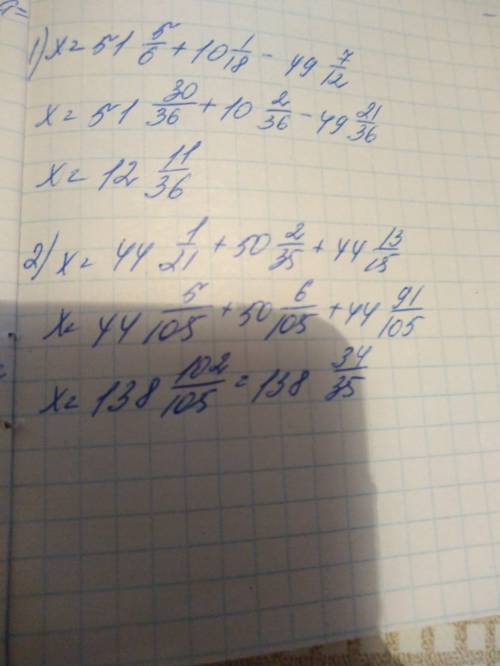 1) x = 51 5/6 + 10 1/18 - 49 7/12
x = 51 30/36 + 10 2/36 - 49 21/36
x = 12 11/36
2) x = 44 1/21 + 50 2/35 + 44 13/15
x = 44 5/105 + 50 6/105 + 44 91/105
x = 138 102/105 = 138 34/35